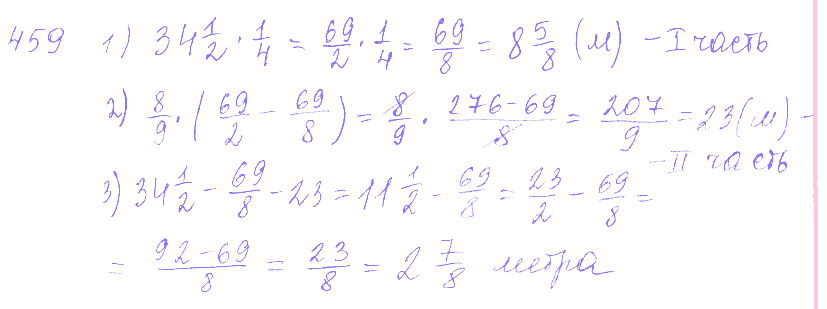 459 1) 34 1/2 · 1/4 = 69/2 · 1/4 = 69/8 = 8 5/8 (м) – I часть
2) 8/9 · (69/2 – 69/8) = 8/9 · (276–69)/8 = 207/9 = 23 (м) –
– II часть
3) 34 1/2 – 69/8 – 23 = 11 1/2 – 69/8 = 23/2 – 69/8 =
= (92–69)/8 = 23/8 = 2 7/8 метра